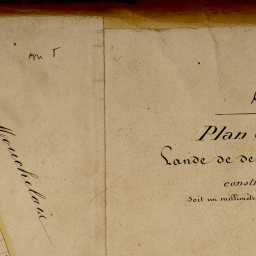 Plan
Lande de de
const
Soit un millimètr
Mouchelair